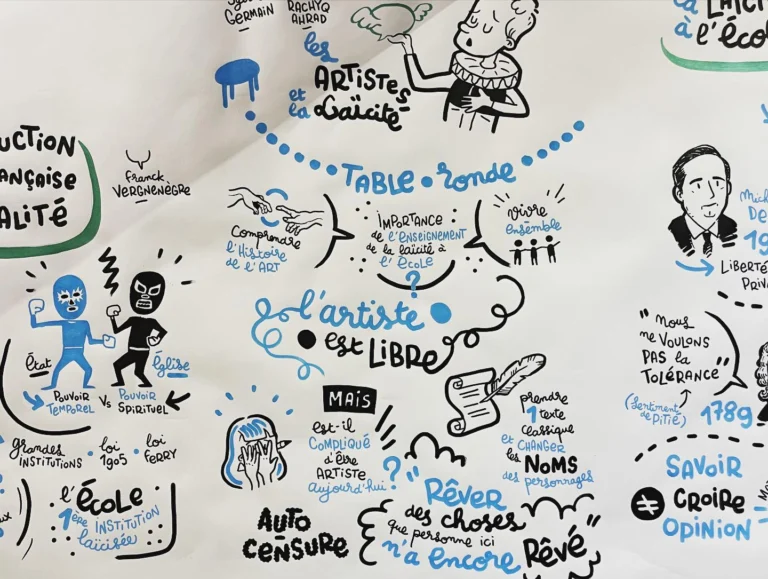 GERMAIN
RACHYQ
AHRAD
les
ARTISTES
et
la Laïcité
TABLE • ronde
Comprendre
l'Histoire
de l'ART
IMPORTANCE
de l'ENSEIGNEMENT
de la laïcité à
l'ÉCOLE
?
vivre
ensemble
l'artiste
est LIBRE
MAIS
est-il
COMPLIQUÉ
d'être
ARTISTE
aujourd'hui
?
AUTO
CENSURE
prendre
1 texte
classique
et CHANGER
les NOMS
des personnages
"Rêver
des choses
que personne ici
n'a encore Rêvé"
UCTION
ANÇAISE
ALITÉ
franck
VERGNENÈGRE
État
Église
POUVOIR
TEMPOREL
VS
POUVOIR
SPIRITUEL
grandes
INSTITUTIONS
• loi
1905
• loi
fERRY
l'ÉCOLE
1ère INSTITUTION
laïcisée
la LAÏC
à l'éco
Mich
De
19
LIBERTÉ
PRIV
"Nous
ne VOULONS
PAS la
TOLÉRANCE"
(Sentiment
de PITIÉ)
1789
SAVOIR
≠ CROIRE
OPINION